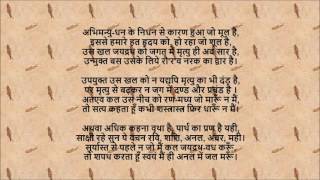 अभिमन्यु-धन के निधन से कारण हुआ जो मूल है,
इससे हमारे हत हृदय को, हो रहा जो शूल है,
उस खल जयद्रथ को जगत में मृत्यु ही अब सार है,
उन्मुक्त बस उसके लिये रौ'र'व नरक का द्वार है।
उपयुक्त उस खल को न यद्यपि मृत्यु का भी दंड है,
पर मृत्यु से बढ़कर न जग में दण्ड और प्रचंड है ।
अतएव कल उस नीच को रण-मध्य जो मारूँ न मैं,
तो सत्य कहता हूँ कभी शस्त्रास्त्र फिर धारूँ न मैं।
अथवा अधिक कहना वृथा है, पार्थ का प्रण है यही,
साक्षी रहे सुन ये वचन रवि, शशि, अनल, अंबर, मही।
सूर्यास्त से पहले न जो मैं कल जयद्रथ-वध करूँ,
तो शपथ करता हूँ स्वयं मैं ही अनल में जल मरूँ।